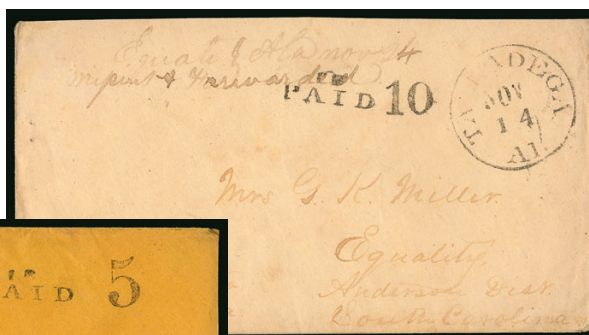 Equality Ala Nov 24
Missent & Forwarded
PAID 10
TALLADEGA
NOV
14
Al.
Mrs G. K. Miller
Equality
Anderson Dist.
South Carolina
PAID 5